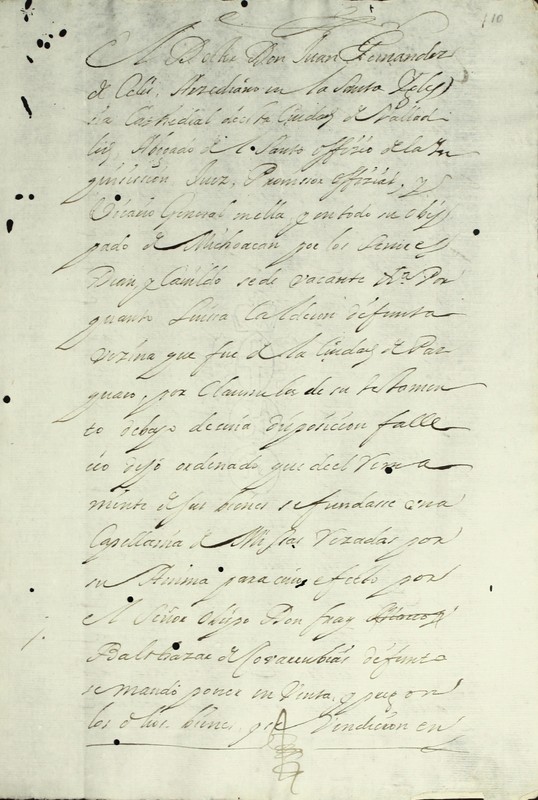 110
El Dottor Don Juan Fernandez
de Celis, Arzediano en la Santa Ygles
ia Cathedral de esta Ciudad de Vallad
lid, Abogado de el Santo officio de la Yn
quisision, Juez, Provisor offizial, y
Vicario General en ella y en todo su Obis
pado de Michoacan por los Señores
Dean, y Cavildo sede vacante &ra Por
quanto Luisa Calderon difunta
vezina que fue de la Ciudad de Paz
quaro, por Clausula de su testamen
to debajo de cuia disposicion falle
cio dejò ordenado que de el rema
niente de sus bienes se fundasse una
Capellania de Missas rezadas por
su Anima para cuio efecto por
el Señor Obispo Don fray
Balthazar de Covarrubias difunto
se mandò poner en Venta, y
los dichos bienes, por Vendicion en